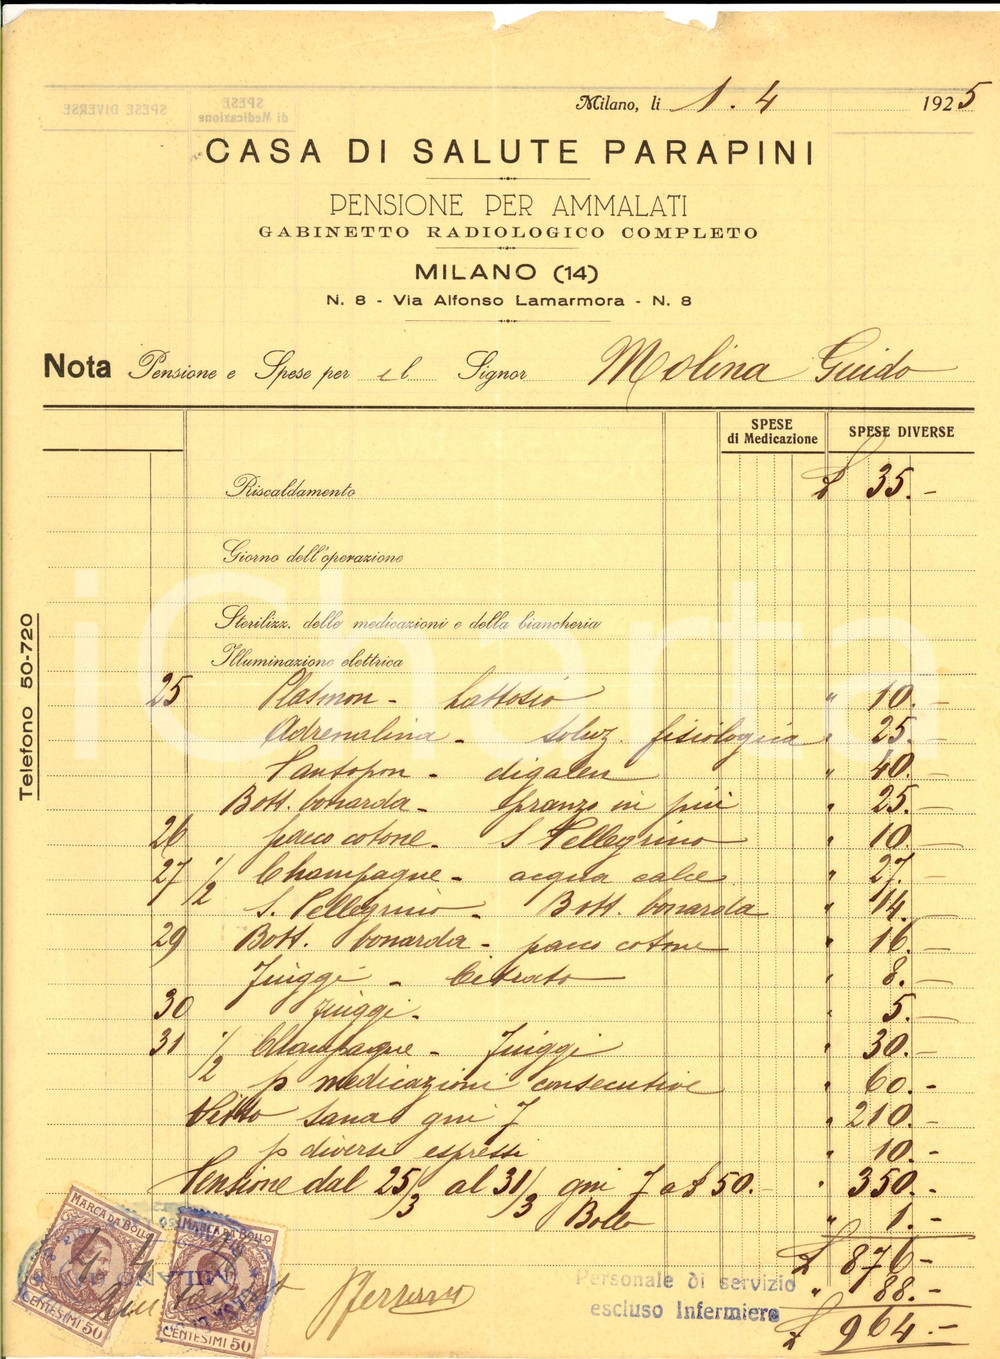 Milano, li 1. 4 1925
CASA DI SALUTE PARAPINI
PENSIONE PER AMMALATI
GABINETTO RADIOLOGICO COMPLETO
MILANO (14)
N. 8 - Via Alfonso Lamarmora - N. 8
Nota Pensione e Spese per il Signor Molina Guido
SPESE di Medicazione
SPESE DIVERSE
Riscaldamento £ 35.-
Giorno dell'operazione
Sterilizz. delle medicazioni e della biancheria
Illuminazione elettrica
25 Plasmon - Lattosio " 10.-
Adrenalina - soluz. fisiologica " 25.-
Pantopon - digalen " 40.-
Bott. bonarda - pranzo in più " 25.-
26 pacco cotone - S. Pellegrino " 10.-
27 1/2 Champagne - acqua calce " 27.-
S. Pellegrino - Bott. bonarda " 14.-
29 Bott. bonarda - pacco cotone " 16.-
Fiuggi - Citrato " 8.-
30 Fiuggi - " 5.-
31 1/2 Champagne - Fiuggi " 30.-
p medicazioni consecutive " 60.-
Vitto sana gni 7 " 210.-
p diversi espressi " 10.-
Pensione dal 25/3 al 31/3 gni 7 a £ 50.- " 350.-
Bollo " 1.-
£ 876-
" 88.-
£ 964.-
Telefono 50-720
MARCA DA BOLLO
CENTESIMI 50
MARCA DA BOLLO
CENTESIMI 50
MILANO
Personale di servizio
escluso Infermiere
iCharta